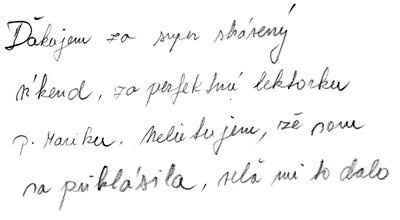 Ďakujem za super strávený
víkend, za perfektnú lektorku
p. Mariku. Neľutujem, že som
sa prihlásila, veľa mi to dalo